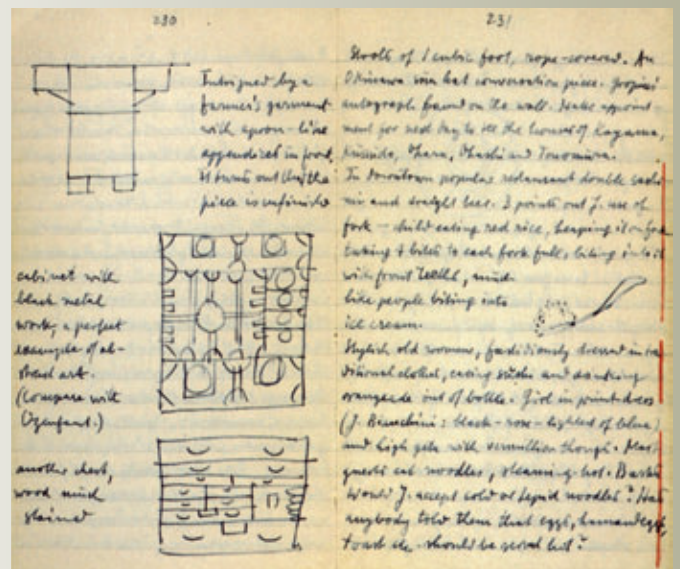 230
Intrigued by a
farmer's garment
with apron-like
appendices in front.
It turns out that the
piece is unfinished
cabinet with
black metal
work, a perfect
example of ab-
stract art.
(Compare with
Ozenfant.)
another chest,
wood much
stained
231
Stools of 1 cubic foot, rope-covered. An
Okinawa hat conversation piece. Gropius'
autograph found on the wall. Make appoint-
ment for next day to see the houses of Kagawa,
Ohara, Ohashi and Tonomura.
In downtown popular restaurant double sashi-
mi and draught beer. I points out J. use of
fork – child eating red rice, heaping it on fork
taking 4 bites to each fork full, biting into it
with front teeth, much
like people biting into
ice cream.
Stylish old woman, fastidiously dressed in tra-
ditional clothes, eating sushi and drinking
orangeade out of bottle. Girl in print dress
(J. Bianchini: black-rose-lighted of blue)
and high geta with vermillion thongs. Most
guests eat noodles, steaming hot.
Would J. accept cold or tepid noodles? Has
anybody told them that eggs, ham and eggs,
toast etc. should be served hot?